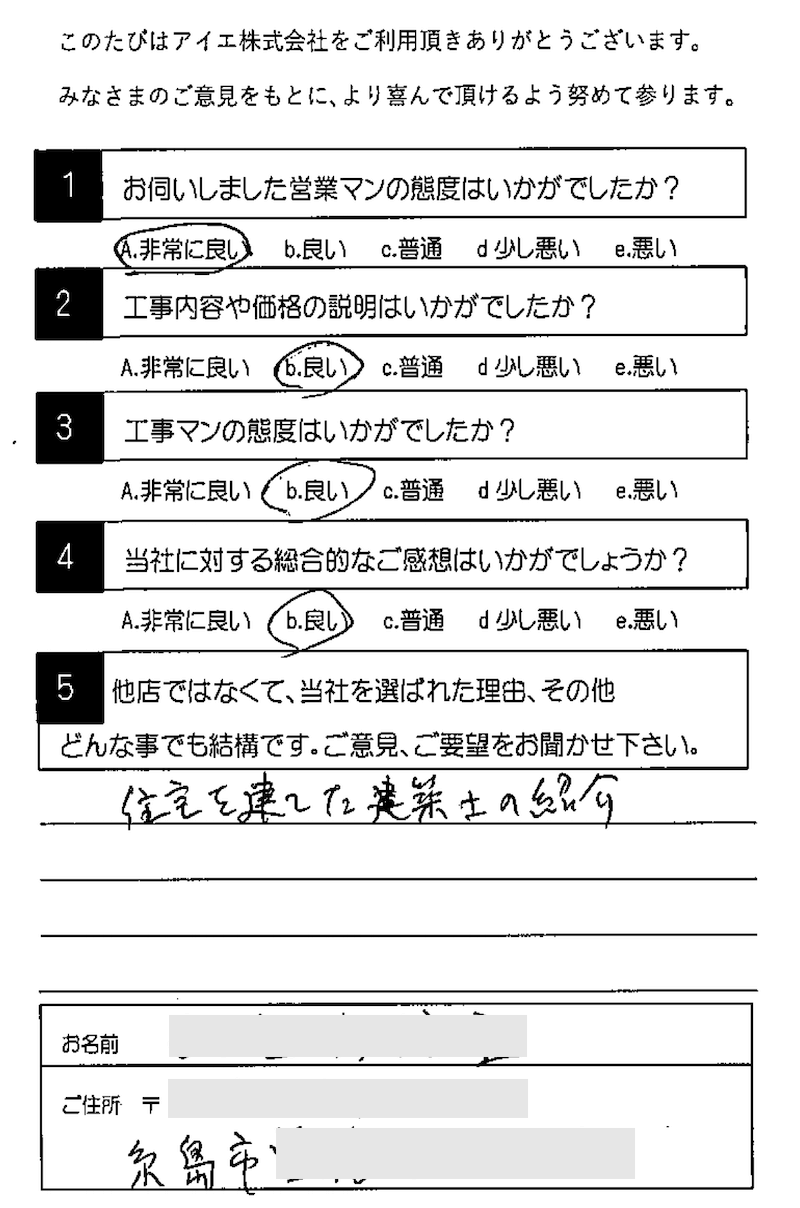 このたびはアイエ株式会社をご利用頂きありがとうございます。
みなさまのご意見をもとに、より喜んで頂けるよう努めて参ります。
1 お伺いしました営業マンの態度はいかがでしたか？
A.非常に良い b.良い c.普通 d少し悪い e.悪い
2 工事内容や価格の説明はいかがでしたか？
A.非常に良い b.良い c.普通 d少し悪い e.悪い
3 工事マンの態度はいかがでしたか？
A.非常に良い b.良い c.普通 d少し悪い e.悪い
4 当社に対する総合的なご感想はいかがでしょうか？
A.非常に良い b.良い c.普通 d少し悪い e.悪い
5 他店ではなくて、当社を選ばれた理由、その他
どんな事でも結構です。ご意見、ご要望をお聞かせ下さい。
住宅を建てた建築士の紹介
お名前
ご住所 〒
糸島市